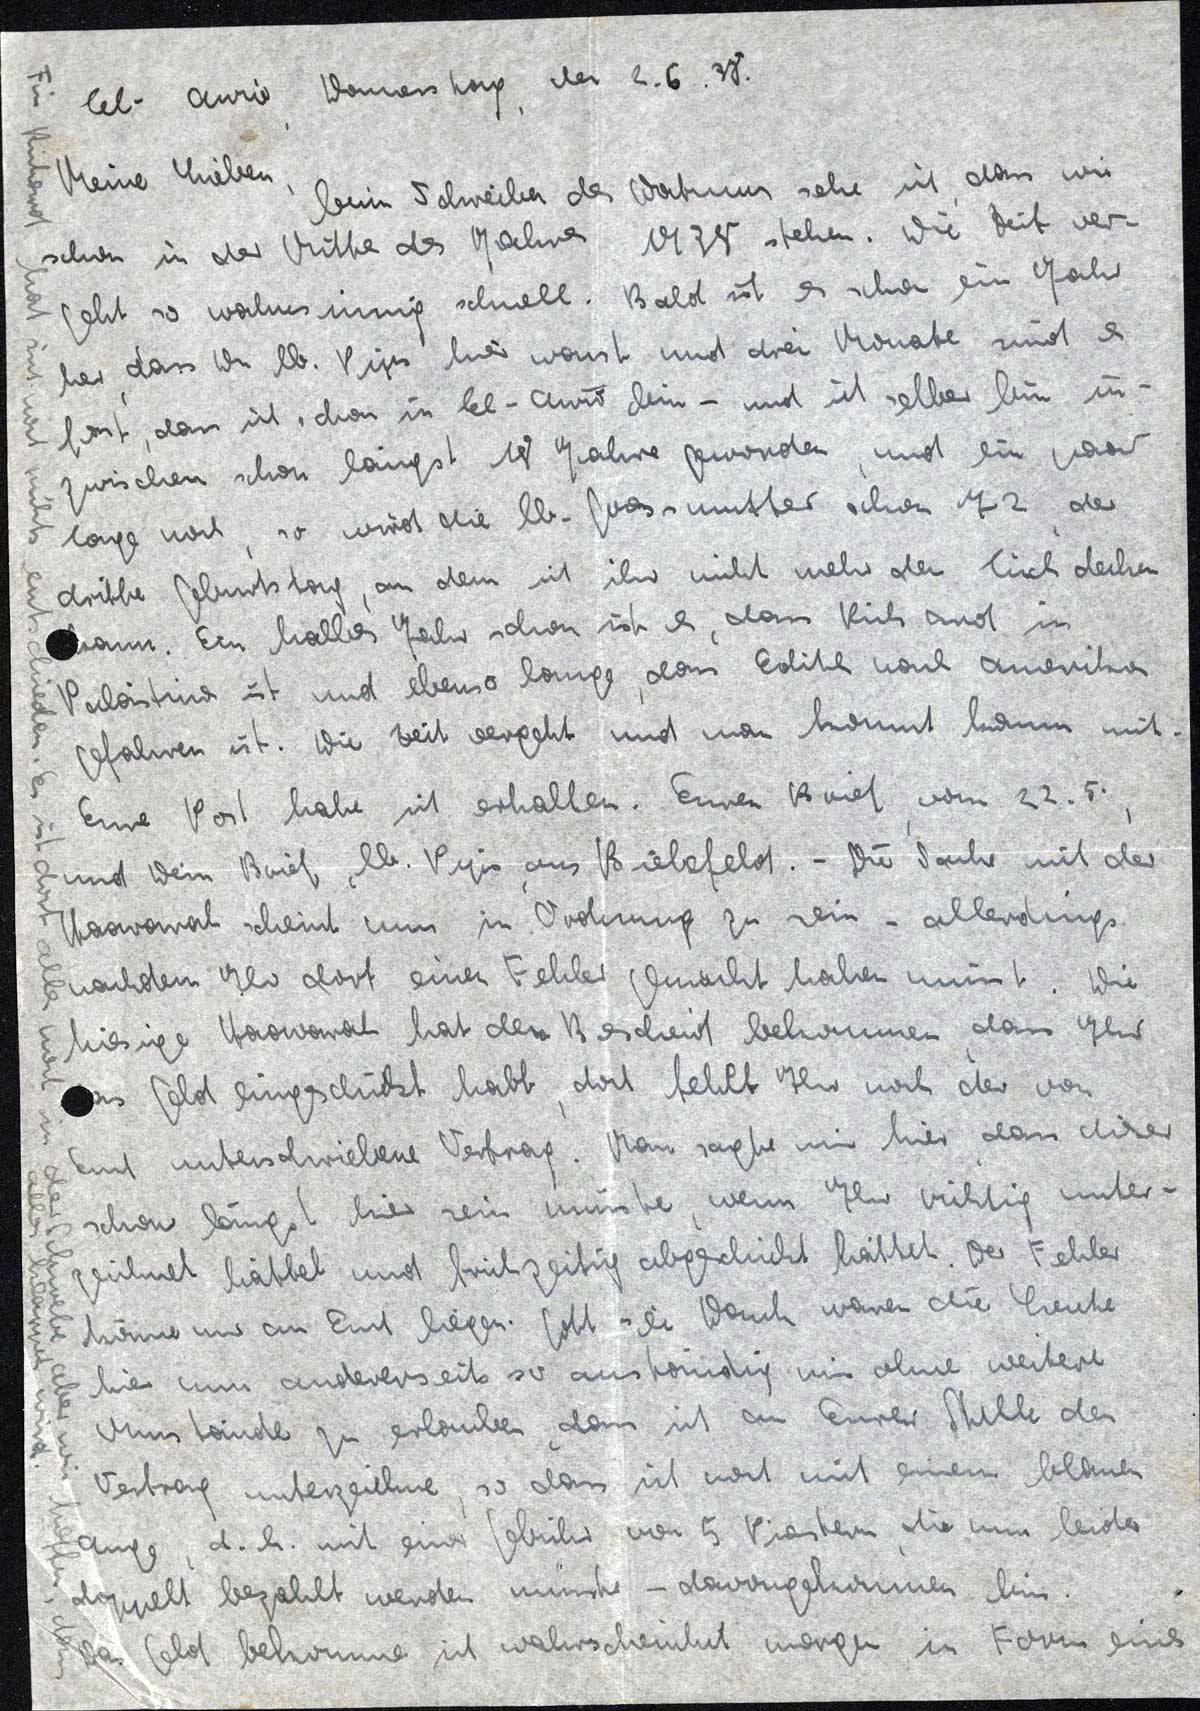 Tel-Awiw, Donnerstag, den 2.6.38.
Meine Lieben,
beim Schreiben des Datums sehe ich, dass wir
schon in der Mitte des Jahres 1938 stehen. Die Zeit ver-
geht so wahnsinnig schnell. Bald ist es schon ein Jahr
her, dass Du lb. Pips hier warst und drei Monate sind es
fast, dass ich schon in Tel-Awiw bin - und ich selber bin in-
zwischen schon längst 18 Jahre geworden, und ein paar
Tage noch, so wird die lb. Grossmutter schon 72, der
dritte Geburtstag, an dem ich ihr nicht mehr den Tisch decken
kann. Ein halbes Jahr schon ist es, dass Richard in
Palästina ist und ebenso lange, dass Edith nach Amerika
gefahren ist. Die Zeit vergeht und man kommt kaum mit.
Eure Post habe ich erhalten. Euren Brief vom 22.5.,
und Dein Brief, lb. Pips, aus Bielefeld. - Die Sache mit der
Haawarah scheint nun in Ordnung zu sein - allerdings
nachdem Ihr dort einen Fehler gemacht haben müsst. Die
hiesige Haawarah hat den Bescheid bekommen, dass Ihr
das Geld eingeschickt habt, doch fehlt Ihr noch der von
Euch unterschriebene Vertrag. Man sagte mir hier, dass dieser
schon längst hier sein müsste, wenn Ihr richtig unter-
zeichnet hättet und frühzeitig abgeschickt hättet. Der Fehler
könne nur an Euch liegen. Gott sei Dank waren die Leute
hier nun andererseits so anständig mir ohne weitere
Umstände zu erlauben, dass ich an Eurer Stelle den
Vertrag unterzeichne, so dass ich noch mit einem blauen
Auge, d.h. mit einer Gebühr von 5 Piastern, die nun leider
doppelt bezahlt werden musste - davongekommen bin.
Das Geld bekomme ich wahrscheinlich morgen in Form eines
Für Richard hat sich noch nichts entschieden. Es ist dort alles noch in der Schwebe aber wir hoffen, dass
alles klappen wird.